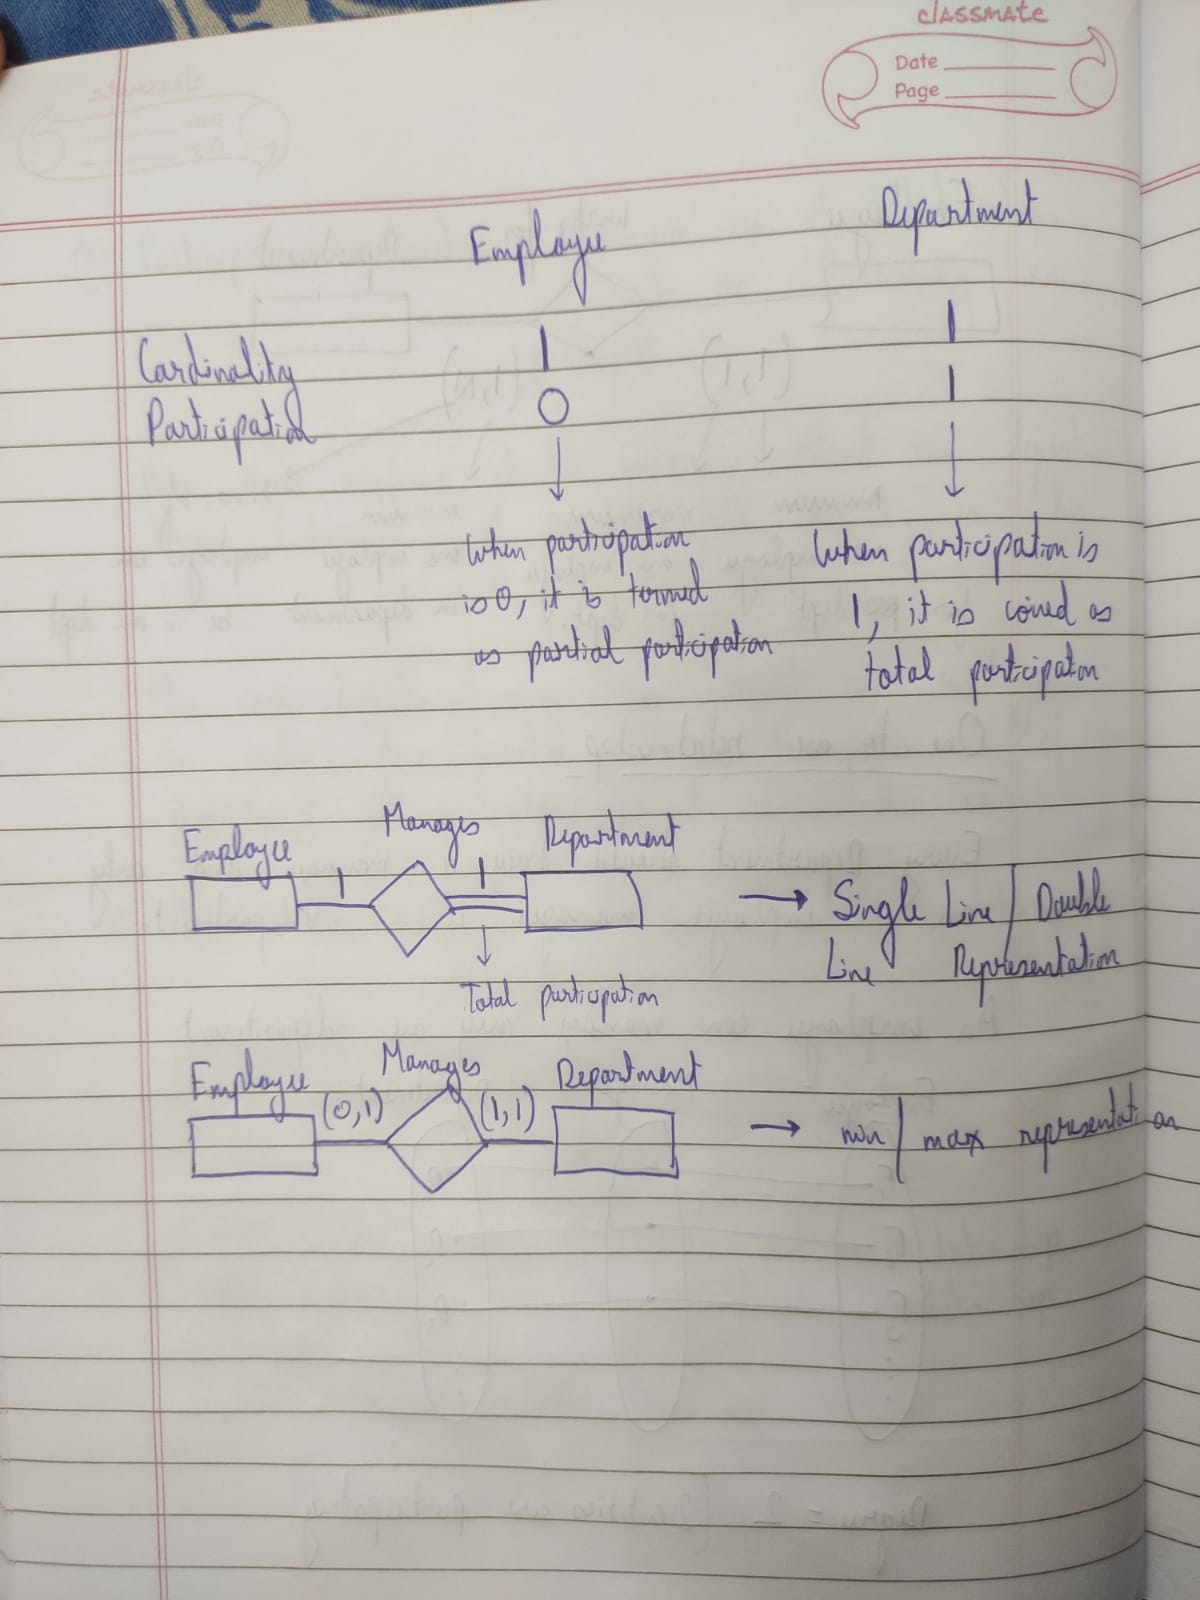 classmate
Date
Page
Employee Department
Cardinality 1 1
Participation 0 1
When participation
is 0, it is termed
as partial participation
When participation is
1, it is coined as
total participation
Employee Manages Department
1 1
→ Single Line / Double
Line Representation
Total participation
Employee Manages Department
(0,1) (1,1)
→ min / max representation